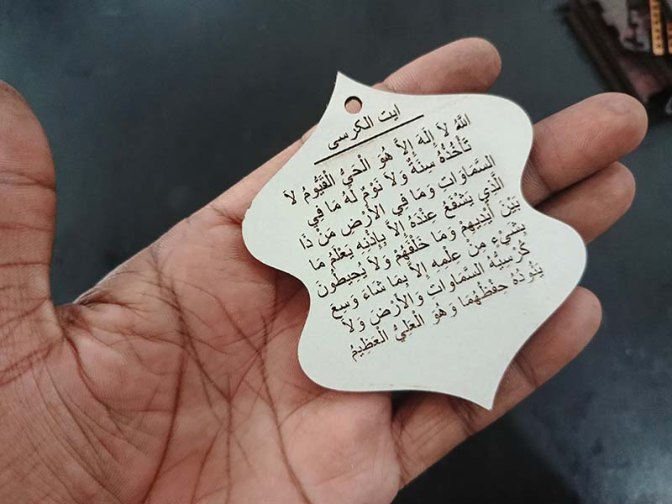 ايت الكرسى
اللهُ لاَ إِلَهَ إِلاَّ هُوَ الْحَيُّ الْقَيُّومُ لاَ
تَأْخُذُهُ سِنَةٌ وَلاَ نَوْمٌ لَهُ مَا فِي
السَّمَاوَاتِ وَمَا فِي الأَرْضِ مَنْ ذَا
الَّذِي يَشْفَعُ عِنْدَهُ إِلاَّ بِإِذْنِهِ يَعْلَمُ مَا
بَيْنَ أَيْدِيهِمْ وَمَا خَلْفَهُمْ وَلاَ يُحِيطُونَ
بِشَيْءٍ مِنْ عِلْمِهِ إِلاَّ بِمَا شَاءَ وَسِعَ
كُرْسِيُّهُ السَّمَاوَاتِ وَالأَرْضَ وَلاَ
يَئُودُهُ حِفْظُهُمَا وَهُوَ الْعَلِيُّ الْعَظِيمُ